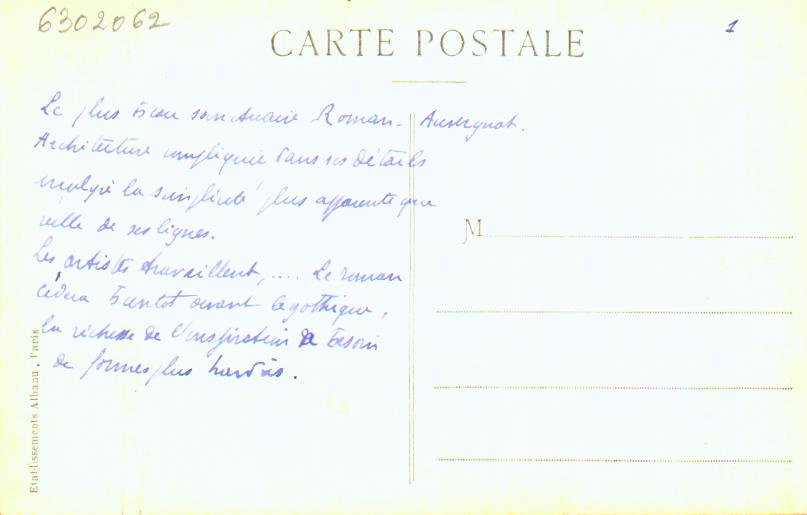 6302062
1
CARTE POSTALE
Le plus beau sanctuaire Roman - Auvergnat.
Architecture compliquée dans ses détails
malgré la simplicité plus apparente que
réelle de ses lignes.
Les artistes travaillent, .... Le roman
cédera bientot devant le gothique,
la richesse de l'inspiration a besoin
de formes plus hardies.
M
Etablissements Albanu, Paris